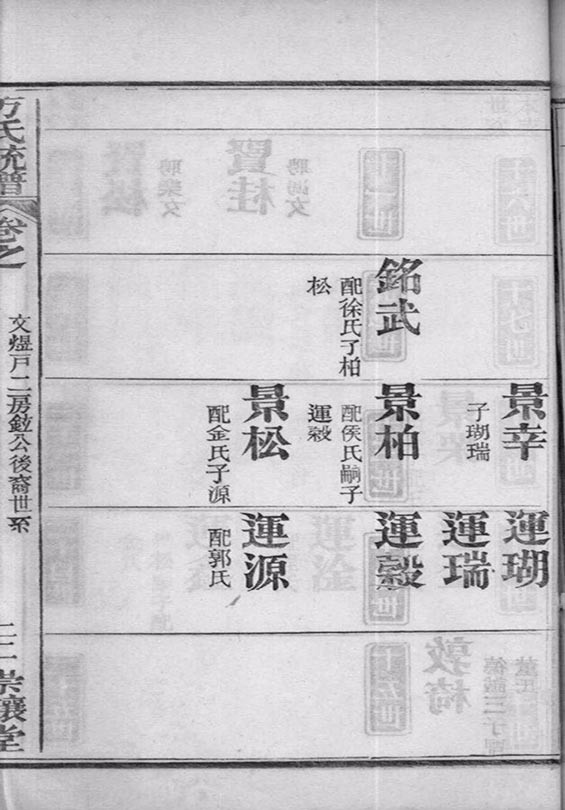 銘武
配徐氏子柏
松
景幸
子瑚瑞
景柏
配侯氏嗣子
運穀
景松
配金氏子源
運瑚
運瑞
運穀
運源
配郭氏
方氏統譜
卷之
文煜戶二房鈜公後裔世系
崇讓堂